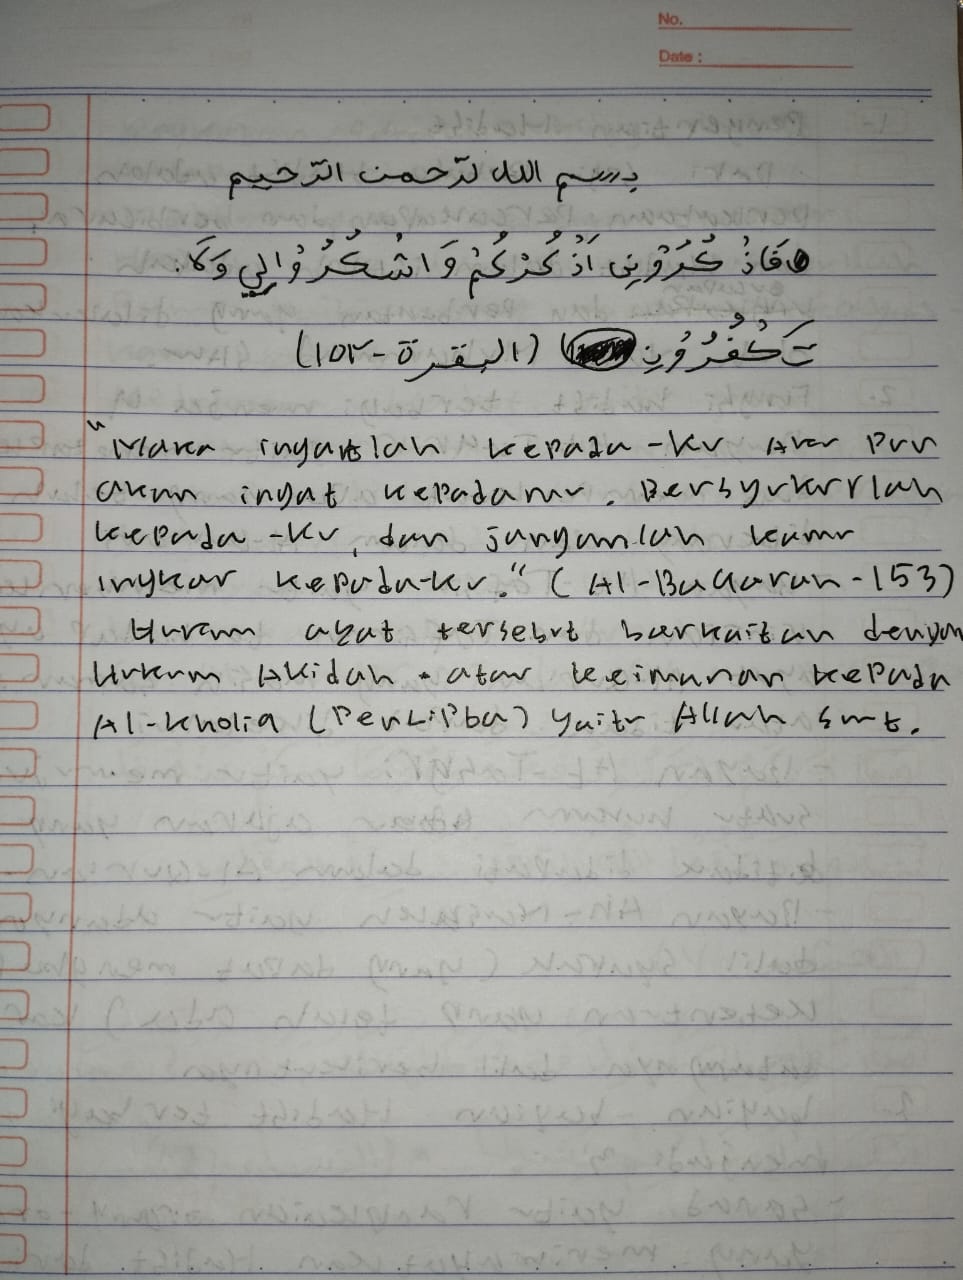 No.
Date :
بسم الله لرّحمن الرّحيم
فَاذْ كُرُوْنِى اَذْ كُرْكُمْ وَ اشْكُرُوْالِي وَلَا
تَكْفُرُوْنِ (البقرة - ١٥٢)
"Maka ingatlah kepada-Ku Aku Pun
akan ingat kepadamu. Bersyukurlah
kepada-Ku, dan janganlah kamu
ingkar kepada-Ku." (Al-Baqarah-153)
Hukum ayat tersebut berkaitan dengan
Hukum Akidah. atau keimanan kepada
Al-Kholia (Penciptba) yaitu Allah swt.